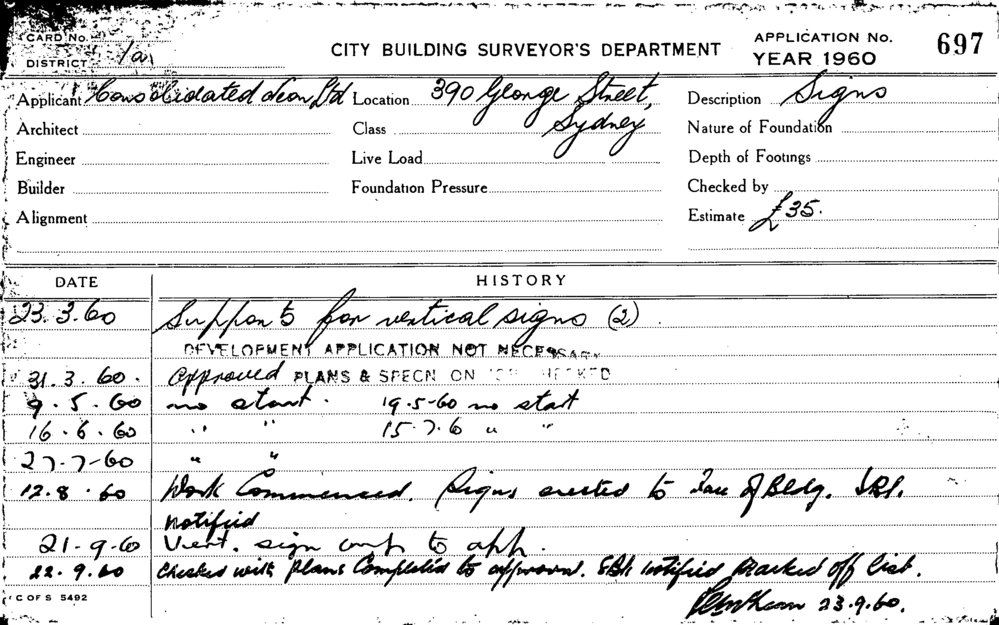 CARD No.
DISTRICT 1a
CITY BUILDING SURVEYOR'S DEPARTMENT
APPLICATION No.
YEAR 1960
697
Applicant Consolidated Neon Ltd Location 390 George Street, Description Signs
Architect Class Sydney Nature of Foundation
Engineer Live Load Depth of Footings
Builder Foundation Pressure Checked by
Alignment Estimate £35.
DATE HISTORY
23.3.60 Supports for vertical signs (2)
DEVELOPMENT APPLICATION NOT NECESSARY
31.3.60. Approved PLANS & SPECN ON CHECKED
9.5.60 no start. 19.5-60 no start
16.6.60 " " 15.7.6 " "
27-7-60 " "
12.8.60 Work Commenced. Signs erected to face of Bldg.
notified
21-9-60 Vert. sign to
22.9.60 Checked with plans Completed to approval. notified Marked off list.
23.9.60.
C OF S 5492